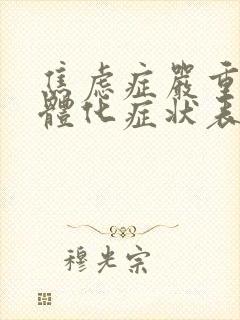 焦虑症嚴重
體化症狀表
穆光宗